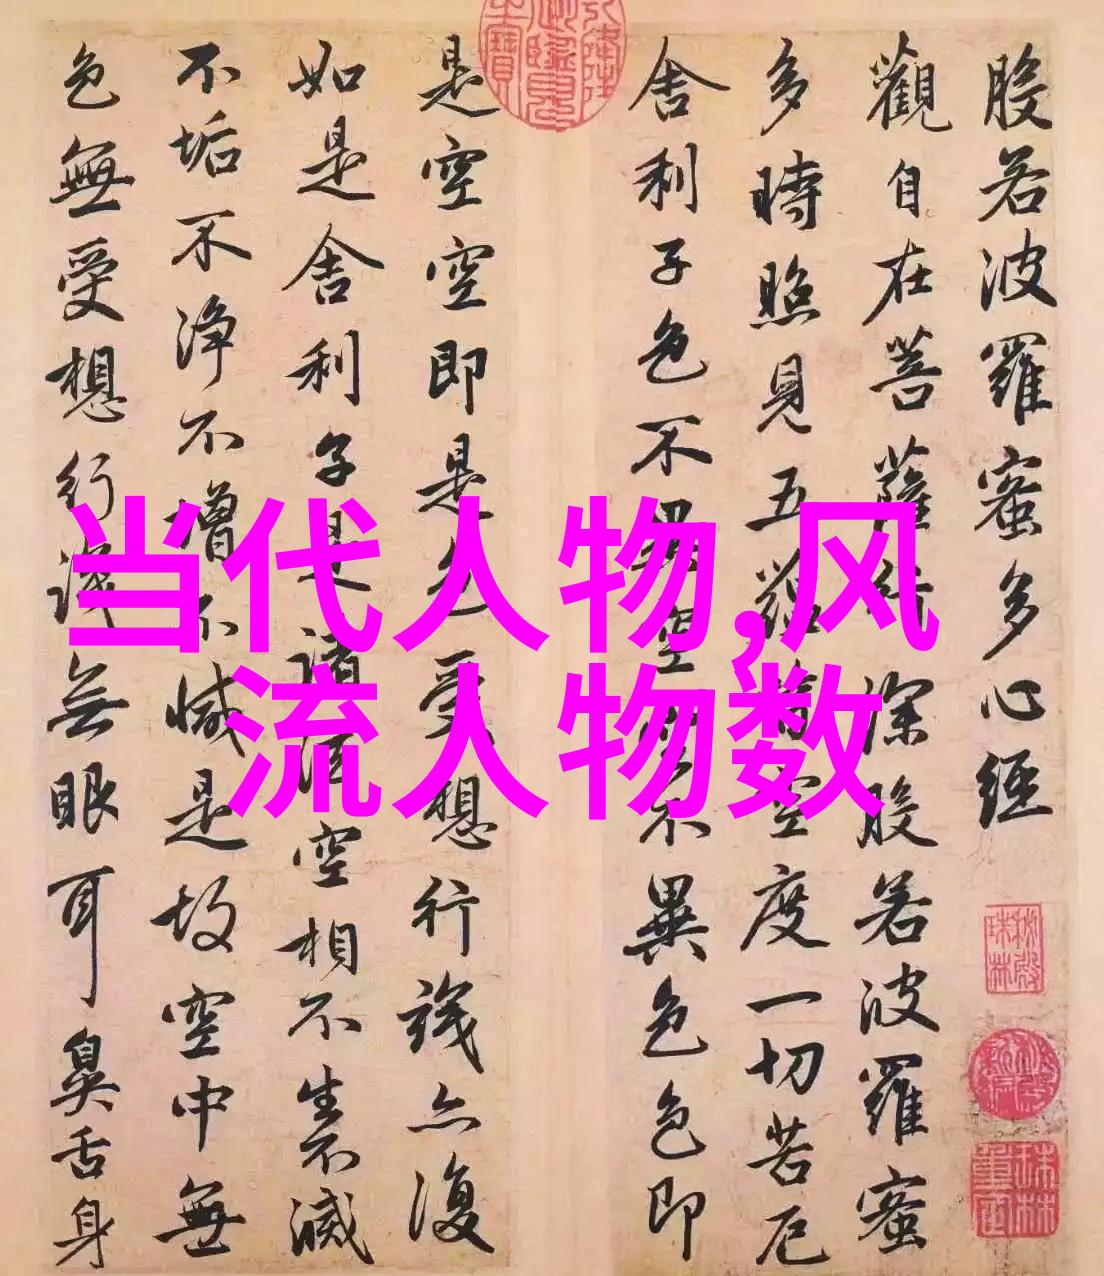 当代人物,风
流人物数
般若波羅蜜多心經
觀自在菩薩行深般若波羅蜜
多時照見五蘊皆空度一切苦厄
舍利子色不異空空不異色色即
是空空即是色受想行識亦復
如是舍利子是諸法空相不生不滅
不垢不淨不增不減是故空中無
色無受想行識無眼耳鼻舌身